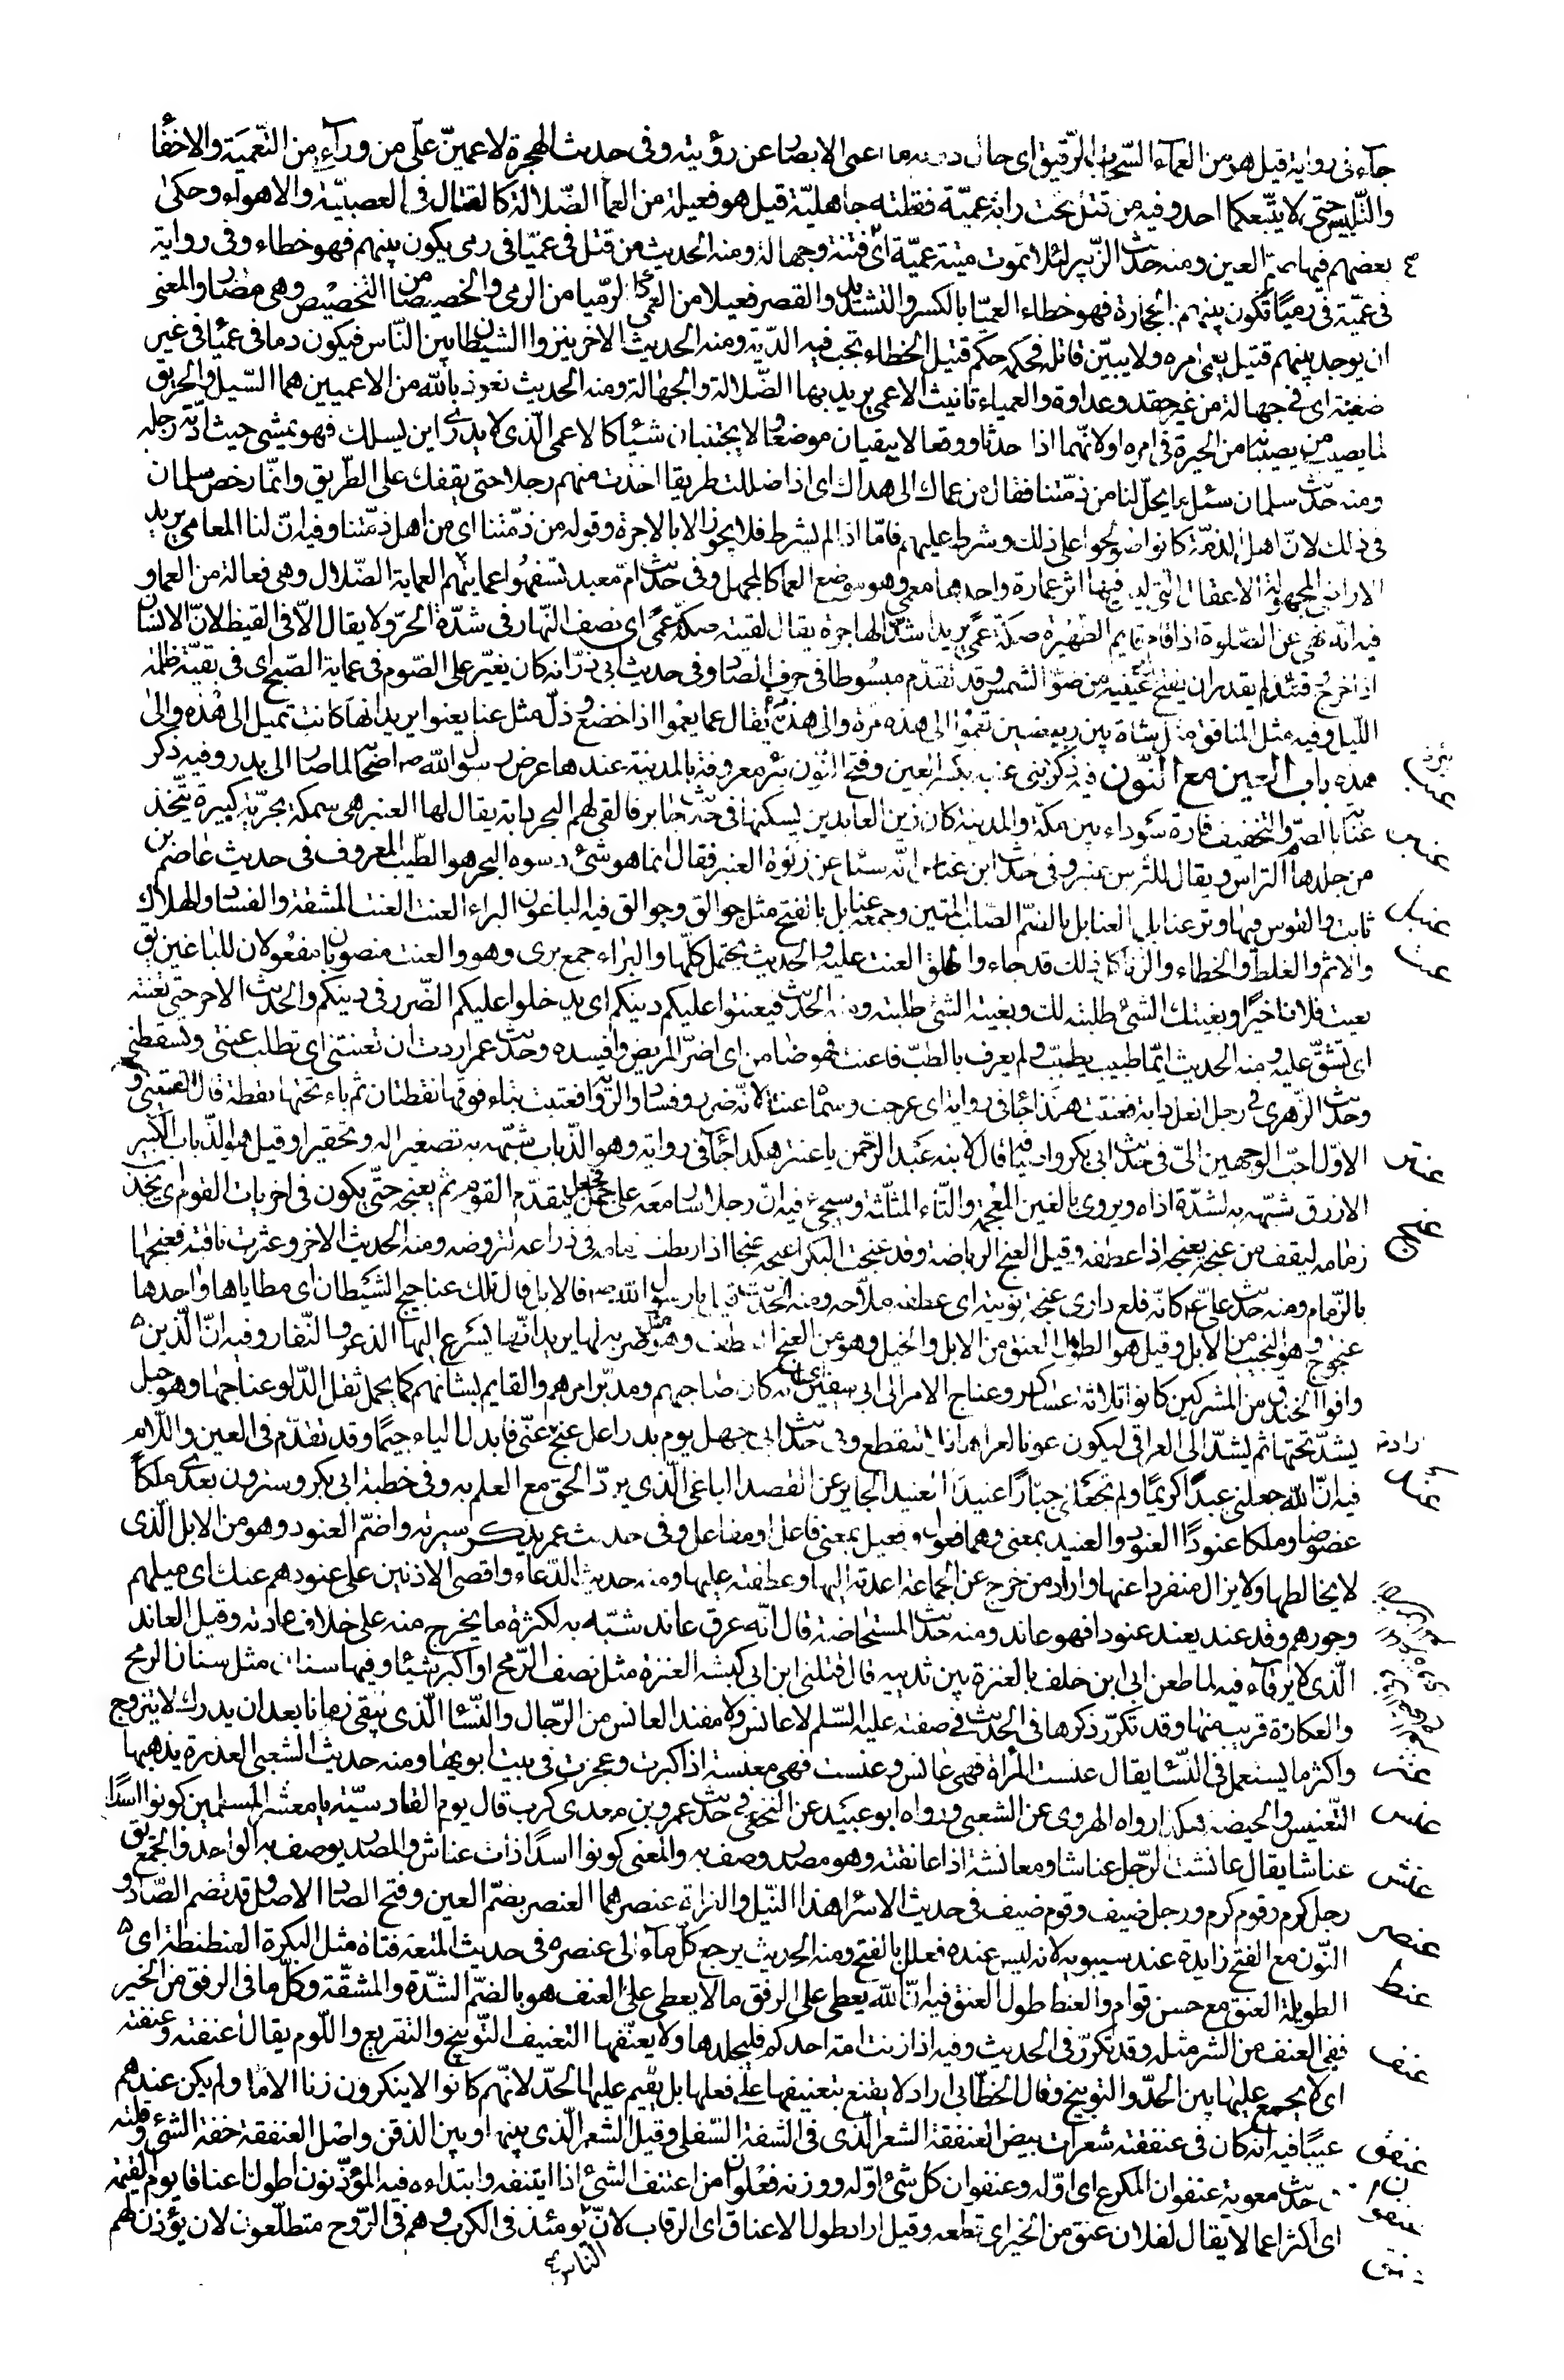 جآء فى رواية قيل هو من العمآء السّحاب الرّقيق اى حال دونه ما اعمى الابصار عن رؤيته وفى حديث الهجرة لاعمينّ على من ورآءى من التّعمية والاخفأ
والتّلبيس حتى لا يتّبعكما احد وفيه من قتل تحت راية عميّة فقتلته جاهليّة قيل هو فعيلة من العمأ الضّلالة كالقتال فى العصبيّة والاهوآء وحكى
بعضهم فيها ضم العين ومنه حديث الزّبير لئلا تموت ميتة عميّة اى فتنة وجهالة ومنه الحديث من قتل فى عميّا فى رمى يكون بينهم فهو خطاء وفى رواية
فى عميّة فى رميّا تكون بينهم بالحجارة فهو خطاء العميّا بالكسر والتشديد والقصر فعيلا من العمى كالرّميا من الرمى والخصيصا من التخصيص وهى مصادر والمعنى
ان يوجد بينهم قتيل يعمى امره ولا يبيّن قاتله فحكمه حكم قتيل الخطاء تجب فيه الدّية ومنه الحديث الاخر ينزوا الشيطان بين النّاس فيكون دما فى عميّا فى غير
ضغينة اى فى جهالة من غير حقد وعداوة والعمياء تانيث الاعمى يريد بها الضّلالة والجهالة ومنه الحديث نعوذ بالله من الاعميين هما السّيل والحريق
لما يصيب من يصيبنا من الحيرة فى امره او لانّهما اذا حدثا ووقعا لا يبقيان موضعا ولا يجتنبان شيئا كالاعمى الّذى لا يدرى اين يسلك فهو يمشى حيث ادّته رجله
ومنه حديث سلمان سئل ما يحلّ لنا من ذمّتنا فقال من عماك الى هداك اى اذا ضللت طريقا اخذت منهم رجلا حتى يقفك على الطّريق وانّما رخص سلمان
فى ذلك لانّ اهل الذمّة كانوا صولحوا على ذلك وشرط عليهم فامّا اذا لم يشرط فلا يجوز الا بالاجرة وقوله من ذمّتنا اى من اهل ذمّتنا وفيه انّ لنا المعامى يريد
الاراضى المجهولة الاعفال التى ليس فيها اثر عمارة واحدها معمى وهو موضع العما كالمجهل وفى حديث امّ معبد تسفّهوا عمايتهم العماية الضّلال وهى فعالة من العما و
فيه انّه نهى عن الصّلوة اذا قام قايم الظّهيرة صكّة عمّى يريد اشدّ الهاجرة يقال لقيته صكّة عمّى اى نصف النّهار فى شدّة الحرّ ولا يقال الّا فى القيظ لانّ الانسان
اذا خرج وقتئذ لم يقدر ان يفتح عينيه من ضوء الشمس وقد تقدّم مبسوطا فى حرف الصاد وفى حديث ابى ذرّ انه كان يغير على الصّوم فى عماية الصّبح اى فى بقيّة ظلمة
اللّيل وفيه مثل المنافق مثل شاة بين ربيضين تعموا الى هذه مرّة والى هذه مرة يقال عما يعموا اذا خضع وذلّ مثل عنا يعنوا يريد انّها كانت تميل الى هذه والى
هذه باب العين مع النّون فيه ذكر بئر عنبه بكسر العين وفتح النّون بئر معروفة بالمدينة عندها عرض رسول الله ص اصحابه لما صار الى بدر وفيه ذكر
عنابا بالضمّ والتخفيف قارة سوداء بين مكّة والمدينة كان زين العابدين يسكنها فى حديث جابر فالقى لهم البحر دابة يقال لها العنبر هى سمكة بحريّة كبيرة يتّخذ
من جلدها التراس ويقال للترس عنبر وفى حديث ابن عباس انّه سئل عن زكوة العنبر فقال انما هو شئ دسره البحر هو الطّيب المعروف فى حديث عاصم بن
ثابت والقوس فيها وتر عنابل العنابل بالضّم الصّلب المتين وجمعه عنابل بالفتح مثل جوالق وجوالق فيه الباغون البراء العنت العنت المشقة والفساد والهلاك
والاثم والغلط والخطاء والزنا كل ذلك قد جاء واطلق العنت عليه والحديث يحتمل كلّها والبراء جمع برى وهو والعنت منصوبان مفعولان للباغين يق
بغيت فلانا خيرًا وبغيتك الشئ طلبته لك وبغيت الشئ طلبته ومنه الحديث فيعنتوا عليكم دينكم اى يدخلوا عليكم الضّرر فى دينكم والحديث الاخر حتى تعنته
اى تشقّ عليه ومنه الحديث ايّما طبيب يطبّب ولم يعرف بالطبّ فاعنت فهو ضامن اى اضرّ المريض وافسده وحديث عمر اردت ان تعنتنى اى تطلب عنتى وتسقطنى
وحديث الزّهرى فى رجل انعل دابة فعنتت هكذا جا فى رواية اى عرجت وسمّاه عنتا لانّه ضرر وفساد والرّواية فعتبت بتاء فوقها نقطتان ثم باء تحتها نقطة قال القتيبى و
الاوّل احبّ الوجهين الىّ فى حديث ابى بكر واضيافه قال لابنه عبد الرّحمن يا عنتر هكذا جآ فى رواية وهو الذّباب شبّهه به تصغيرا له وتحقيرا وقيل هو الذّباب الكبير
الازرق شبّهه به لشدّة اذاه ويروى بالغين المعجمة والثّاء المثلّثة وسيجئ فيه انّ رجلا سار معه على جمل فجعل يتقدّم القوم ثم يعنجه حتّى يكون فى اخريات القوم اى يجذب
زمامه ليقف من عنجه يعنجه اذا عطفه وقيل العنج الرياضة وقد عنجت البكر اعنجه عنجا اذا ربطت زمامه فى ذراعه لتروضه ومنه الحديث الاخر وعثرت ناقته فعنجها
بالزّمام ومنه حديث علىّ ع كانّه قلع دارى عنجه نوتيه اى عطفه ملّاحه ومنه الحديث قيل يا رسول الله ص فالابل قال تلك عناجيج الشّيطان اى مطاياها واحدها
عنجوج وهو النجيب من الابل وقيل هو الطويل العنق من الابل والخيل وهو من العنج العطف وهو مثل ضربه لها يريد انّها يسرع اليها الذعر والنّفار وفيه انّ الّذين
وافوا الخندق من المشركين كانوا ثلاثة عساكر وعناج الامر الى ابى سفين اى انه كان صاحبهم ومدبّر امرهم والقايم بشانهم كما يحمل ثقل الدّلو عناجها وهو حبل
يشدّ تحتها ثم يشدّ الى العراقى ليكون عونا لعراها فلا تنقطع وفى حديث ابى جهل يوم بدر اعل عنج اى عنّى فابدل الياء جيمًا وقد تقدّم فى العين واللّام
فيه انّ الله جعلنى عبدًا كريمًا ولم يجعلنى جبّارًا عنيدًا العنيد الجاير عن القصد الباغى الّذى يردّ الحق مع العلم به وفى خطبة ابى بكر وسترون بعدى ملكا
عضوضا وملكا عنودًا العنود والعنيد بمعنى وهما فعول وفعيل بمعنى فاعل او مفاعل وفى حديث عمر يذكر سيرته واضمّ العنود وهو من الابل الّذى
لا يخالطها ولا يزال منفردا عنها واراد من خرج عن الجماعة اعدته اليها وعطفته عليها ومنه حديث الدّعاء واقصى الادنين على عنودهم عنك اى ميلهم
وجورهم وقد عند يعند عنودا فهو عاند ومنه حديث المستحاضة قال انّه عرق عاند شبّه به لكثرة ما يخرج منه على خلاف عادته وقيل العاند
الّذى لا يرقاء فيه لما طعن ابى ابن خلف بالعنزة بين ثدييه قال قتلنى ابن ابى كبشه العنزة مثل نصف الرّمح او اكبر شيئا وفيها سنان مثل سنان الرمح
والعكازة قريب منها وقد تكرّر ذكرها فى الحديث فى صفته عليه السّلم لا عانس ولا مفند العانس من الرّجال والنّسا الّذى يبقى زمانا بعد ان يدرك لا يتزوج
واكثر ما يستعمل فى النّسا يقال عنست المرأة فهى عانس وعنست فهى معنسة اذا كبرت وعجزت فى بيت ابويها ومنه حديث الشعبى العذرة يذهبها
التّعنيس والحيضه هكذا رواه الهروى عن الشعبى ورواه ابو عبيد عن النخعى فى حديث عمرو بن معدى كرب قال يوم القادسيّة يا معشر المسلمين كونوا اسدًا
عناشا يقال عانشت الرّجل عناشا ومعانشة اذا عانقته وهو مصدر وصف به والمعنى كونوا اسدًا ذات عناش والمصدر يوصف به الواحد والجمع يق
رجل كرم وقوم كرم ورجل ضيف وقوم ضيف فى حديث الاسرا هذا النّيل والفراة عنصرهما العنصر بضمّ العين وفتح الصاد الاصل وقد تضم الصّاد و
النّون مع الفتح زايدة عند سيبويه لانه ليس عنده فعلل بالفتح ومنه الحديث يرجع كلّ مآء الى عنصره فى حديث المتعة فتاة مثل البكرة العنطنطة اى
الطويلة العنق مع حسن قوام والعنط طول العنق فيه انّ الله يعطى على الرفق ما لا يعطى على العنف هو بالضّم الشدّة والمشقّة وكلّ ما فى الرفق من الخير
ففى العنف من الشر مثله وقد تكرّر فى الحديث وفيه اذا زنت امة احدكم فليجلدها ولا يعنّفها التعنيف التّوبيخ والتقريع واللّوم يقال اعنفته وعنفته
اى لا يجمع عليها بين الحدّ والتوبيخ وقال الخطّابى اراد لا يقنع بتعنيفها على فعلها بل يقيم عليها الحدّ لانّهم كانوا لا ينكرون زنا الاما ولم يكن عندهم
عيبًا فيه انّه كان فى عنفقته شعرات بيض العنفقة الشعر الّذى فى الشفة السّفلى وقيل الشعر الّذى بينها وبين الذقن واصل العنفقة خفة الشئ وقلته
حديث معوية عنفوان المكرع اى اوّله وعنفوان كل شئ اوّله ووزنه فعلوان من اعتنف الشئ اذا ايتنفه وابتداءه فيه المؤذّنون اطول اعناقا يوم القيمة
اى اكثر اعمالا يقال لفلان عنق من الخير اى قطعه وقيل اراد طول الاعناق اى الرقاب لانّ الناس يومئذ فى الكرب وهم فى الرّوح متطلّعون لان يؤذن لهم
عنبر
عنبل
عنت
عنتر
عنج
عند
عنز
عنس
عنش
عنصر
عنط
عنف
عنفق